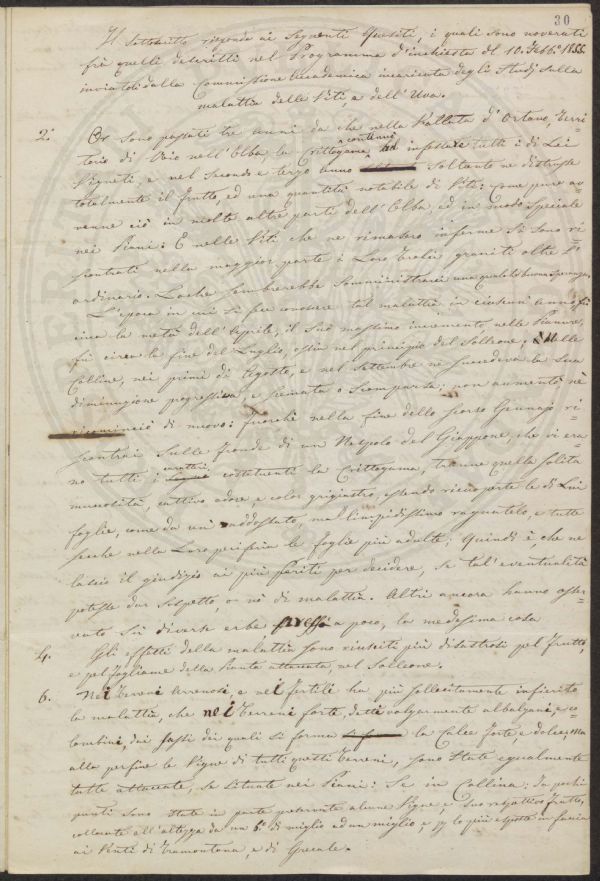 30
Il Sottoscritto risponde ai Seguenti Quesiti, i quali sono noverati
fra quelli descritti nel Programma d'inchiesta del 10. Febb.º 1855.
inviatoli dalla Commissione Accademica incaricata degli Studj sulla
malattia delle Viti, e dell'Uva.
2.º Or sono passati tre anni da che nella Vallata d'Ortano, Terri=
torio di Rio nell'Elba la Crittogama continuò ad infestare tutti i di Lei
Vigneti, e nel Secondo e terzo anno Soltanto ne distrusse
totalmente il frutto, ed una quantità notabile di Viti: come pure av=
venne ciò in molte altre parti dell'Elba, ed in modo Speciale
nei Piani: E nelle Viti che ne rimasero inferme Si Sono ri=
scontrati nella maggior parte i Loro tralci graniti oltre l'
ordinario. Loche Sembrerebbe Somministrarci una qualche buona Speranza.
L'epoca in cui si fece conoscere tal malattia in ciascun anno fù
circa la metà dell'Aprile; il Suo massimo incremento, nelle Pianure,
fù circa la fine del Luglio, ossia nel principio del Solleone; Nelle
Colline, nei primi di Agosto, e nel Settembre ne Succedeva la Sua
diminuzione progressiva, e Scemata o Scomparsa; non aumentò nè
ricominciò di nuovo: fuorchè nella fine dello scorso Gennajo ri=
scontrai Sulle fronde di un Nespolo del Giappone, che vi era=
no tutti i caratteri costituenti la Crittogama, tranne quella solita
mucosità, cattivo odore, e color grigiastro, essendo ricuoperte le di Lui
foglie, come da un addossato, ma limpidissimo ragnatelo, e tutte
secche nella Loro periferia le foglie più adulte; Quindi è, che ne
lascio il giudizio ai più Periti per decidere, se tal'eventualità
potesse dar Sospetto, o nò di malattia. Altri ancora hanno osser=
vato Sù diverse erbe pressa a poco, la medesima cosa
4. Gli effetti della malattia sono riusciti più disastrosi pel frutto,
e pel fogliame della Pianta attaccata, nel Solleone.
6. Nei Terreni Arenosi, e nei Fertili ha più sollecitamente infierito
la malattia, che nei Terreni forte, detti volgarmente albazzani, e co=
lombini, dei Sassi dei quali si forma la Calce forte, e dolce, ma
alla perfine le Vigne di tutti questi Terreni, sono State egualmente
tutte attaccate, se Situate nei Piani: Se in Collina; In pochi
punti Sono State in parte preservate alcune Vigne, e Suo respettivo frutto,
collocate all'altezza da un 6.º di miglio ad un miglio, e p lo più esposte in faccia
ai Venti di Tramontana, e di Grecale.